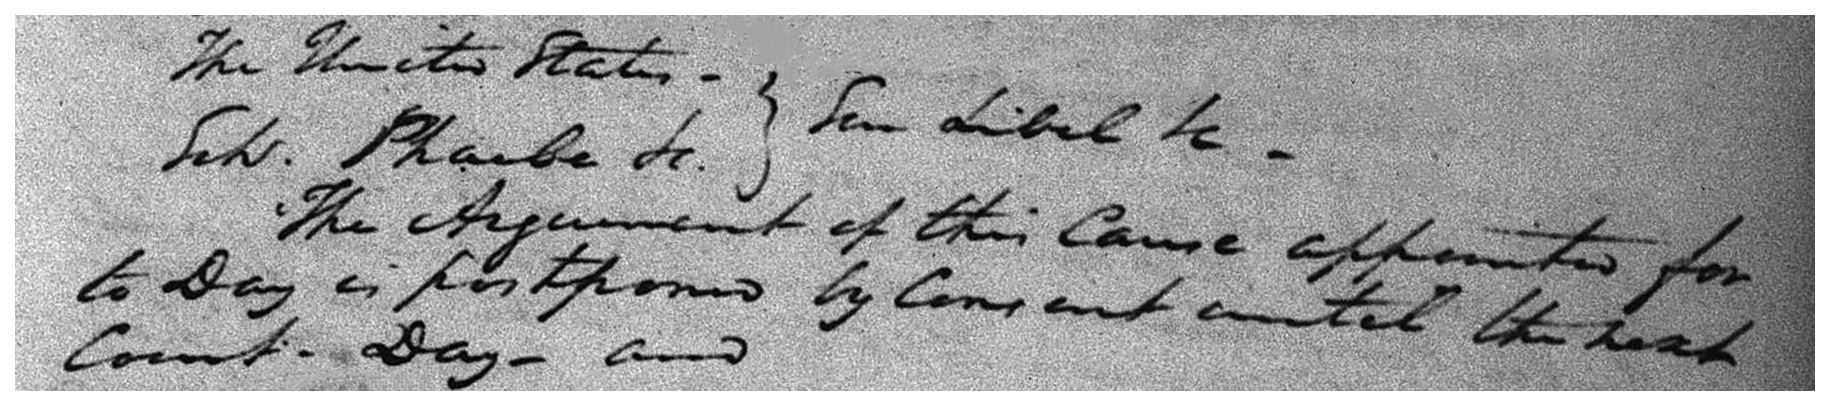 The United States -
Sch. Phoebe &c. } Sur Libel &c -
The Argument of this Cause appointed for
to Day is postponed by Consent until the next
Court - Day - and